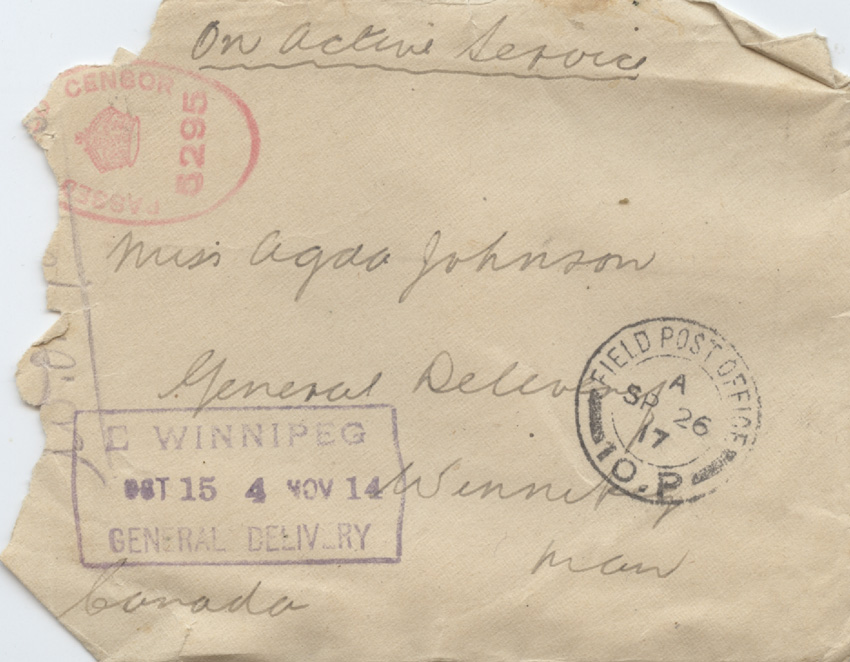 On Active Service
CENSOR
5295
PASSED
Miss Agda Johnson
General Delivery
FIELD POST OFFICE
A
SP 26
17
10.P
WINNIPEG
OCT 15 4 NOV 14
GENERAL DELIV_RY
Winnipeg
Man
Canada